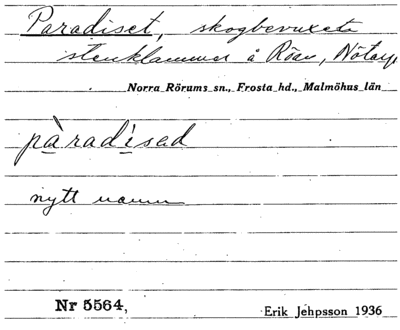 Paradiset, skogbevuxeta
stenklammer å Röan, Nötaryp
Norra Rörums sn., Frosta hd., Malmöhus län
pàradìsad
nytt namn
Nr 5564,
Erik Jehpsson 1936